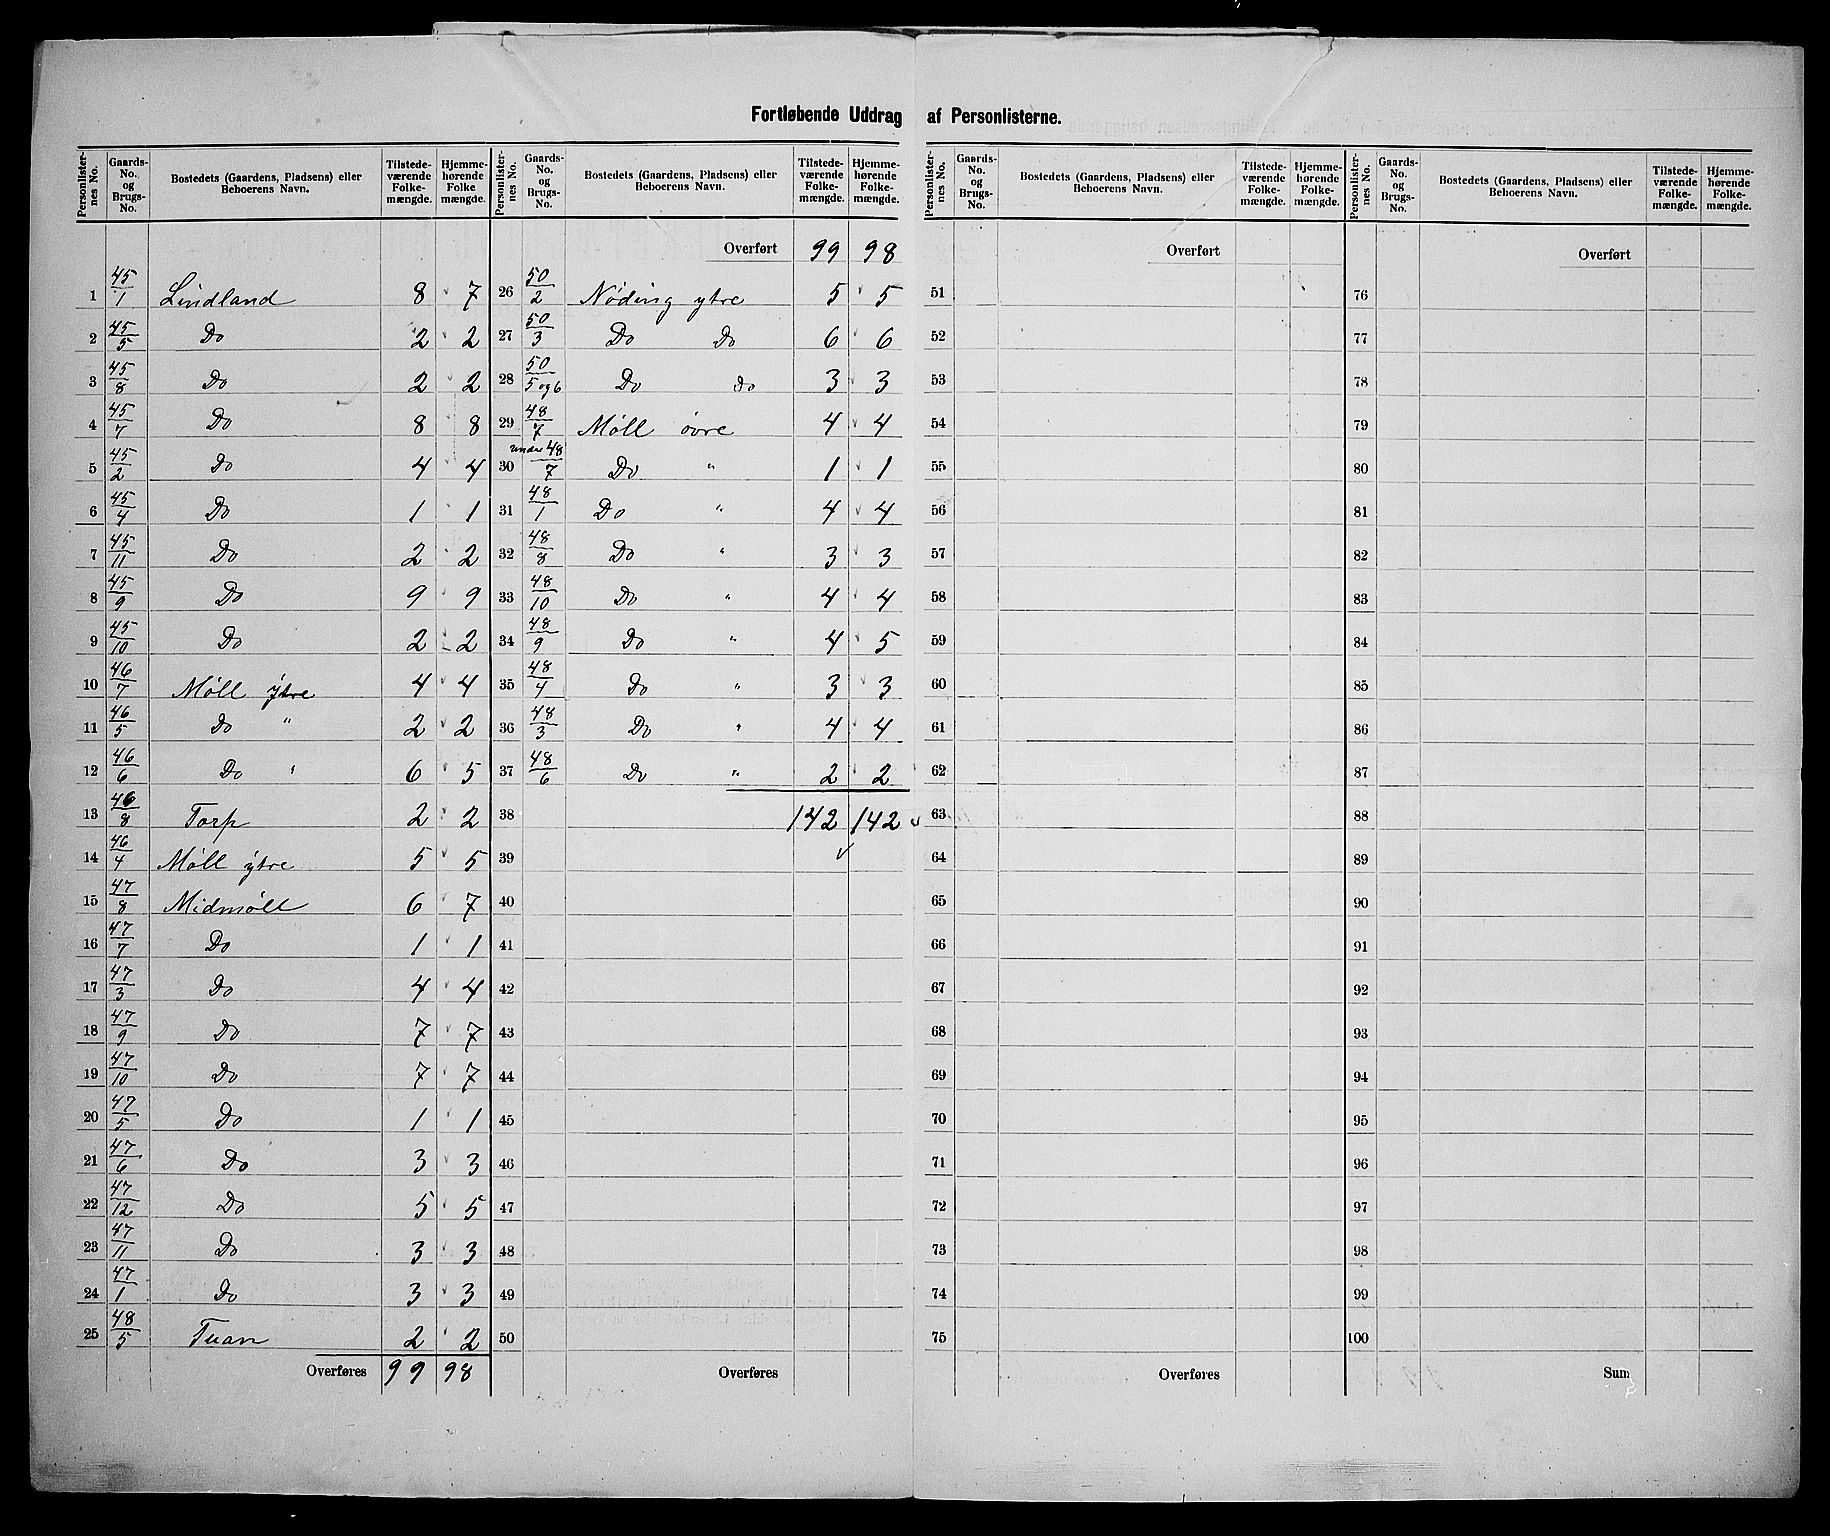 Fortløbende Uddrag af Personlisterne.
Personlister-nes No. | Gaards-No. og Brugs-No. | Bostedets (Gaardens, Pladsens) eller Beboerens Navn. | Tilstede-værende Folke-mængde. | Hjemme-hørende Folke mængde.
1 45/1 Lindland 8 7
2 45/5 Do 2 2
3 45/8 Do 2 2
4 45/7 Do 8 8
5 45/2 Do 4 4
6 45/4 Do 1 1
7 45/11 Do 2 2
8 45/9 Do 9 9
9 45/10 Do 2 2
10 46/7 Möll ytre 4 4
11 46/5 Do " 2 2
12 46/6 Do " 6 5
13 46/8 Torp 2 2
14 46/4 Möll ytre 5 5
15 47/8 Midmöll 6 7
16 47/7 Do 1 1
17 47/3 Do 4 4
18 47/9 Do 7 7
19 47/10 Do 7 7
20 47/5 Do 1 1
21 47/6 Do 3 3
22 47/12 Do 5 5
23 47/11 Do 3 3
24 47/1 Do 3 3
25 48/5 Tuan 2 2
Overføres 99 98
Personlister-nes No. | Gaards-No. og Brugs-No. | Bostedets (Gaardens, Pladsens) eller Beboerens Navn. | Tilstede-værende Folke-mængde. | Hjemme-hørende Folke-mængde.
Overført 99 98
26 50/2 Nöding ytre 5 5
27 50/3 Do Do 6 6
28 50/5 og 6 Do do 3 3
29 48/7 Möll övre 4 4
30 under 48/7 Do " 1 1
31 48/1 Do " 4 4
32 48/8 Do " 3 3
33 48/10 Do " 4 4
34 48/9 Do " 4 5
35 48/4 Do " 3 3
36 48/3 Do " 4 4
37 48/6 Do " 2 2
38 142 142
39
40
41
42
43
44
45
46
47
48
49
50
Overføres
Personlister-nes No. | Gaards-No. og Brugs-No. | Bostedets (Gaardens, Pladsens) eller Beboerens Navn. | Tilstede-værende Folke-mængde. | Hjemme-hørende Folke-mængde.
Overført
51
52
53
54
55
56
57
58
59
60
61
62
63
64
65
66
67
68
69
70
71
72
73
74
75
Overføres
Personlister-nes No. | Gaards-No. og Brugs-No. | Bostedets (Gaardens, Pladsens) eller Beboerens Navn. | Tilstede-værende Folke-mængde. | Hjemme-hørende Folke-mængde.
Overført
76
77
78
79
80
81
82
83
84
85
86
87
88
89
90
91
92
93
94
95
96
97
98
99
100
Sum